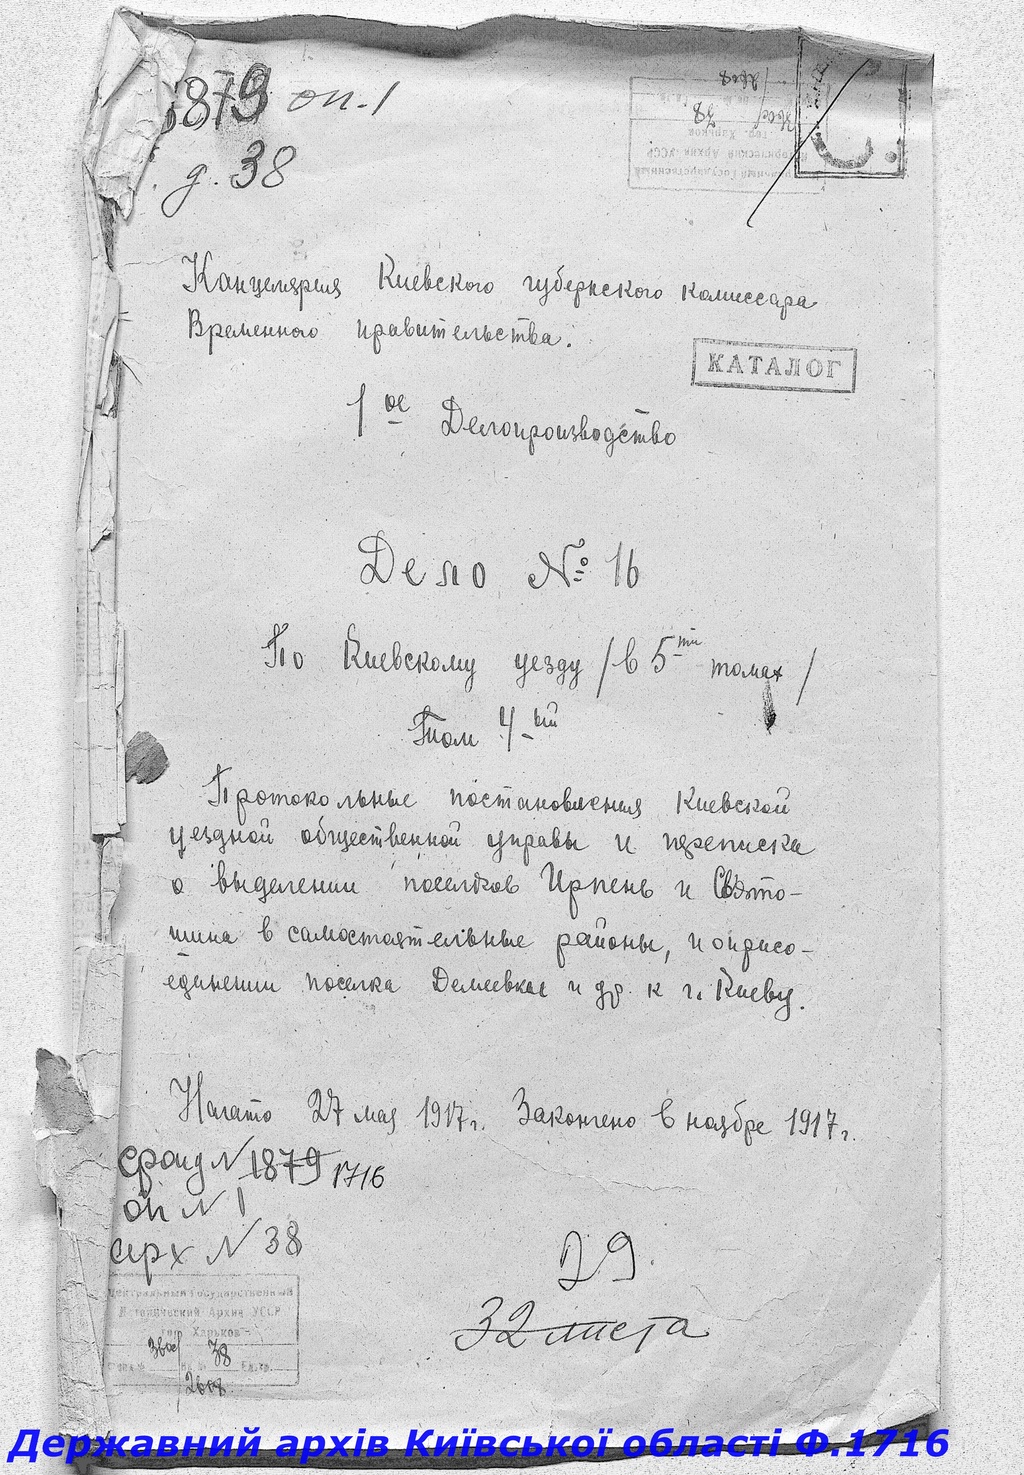 1879 оп. 1
д. 38
Канцелярия Киевского губернского комиссара
Временного правительства.
КАТАЛОГ
1ое Делопроизводство
Дело № 16
По Киевскому уезду /в 5ти томах/
Том 4ый
Протокольные постановления Киевской
уездной общественной управы и переписка
о выделении поселков Ирпень и Свято-
шина в самостоятельные районы, и о присо-
единении поселка Демиевка и др. к г. Киеву.
Начато 27 мая 1917 г. Закончено в ноябре 1917 г.
фонд № 1879 1716
оп № 1
арх № 38
29.
32 листа
Центральный Государственный
Исторический Архив УССР
гор. Харьков
38
Ед. хр.
Державний архів Київської області Ф.1716